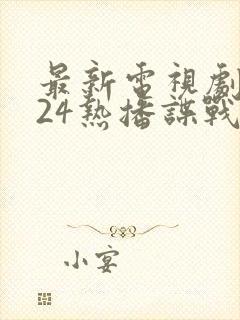 最新電視劇
24熱播諜戰
小宴